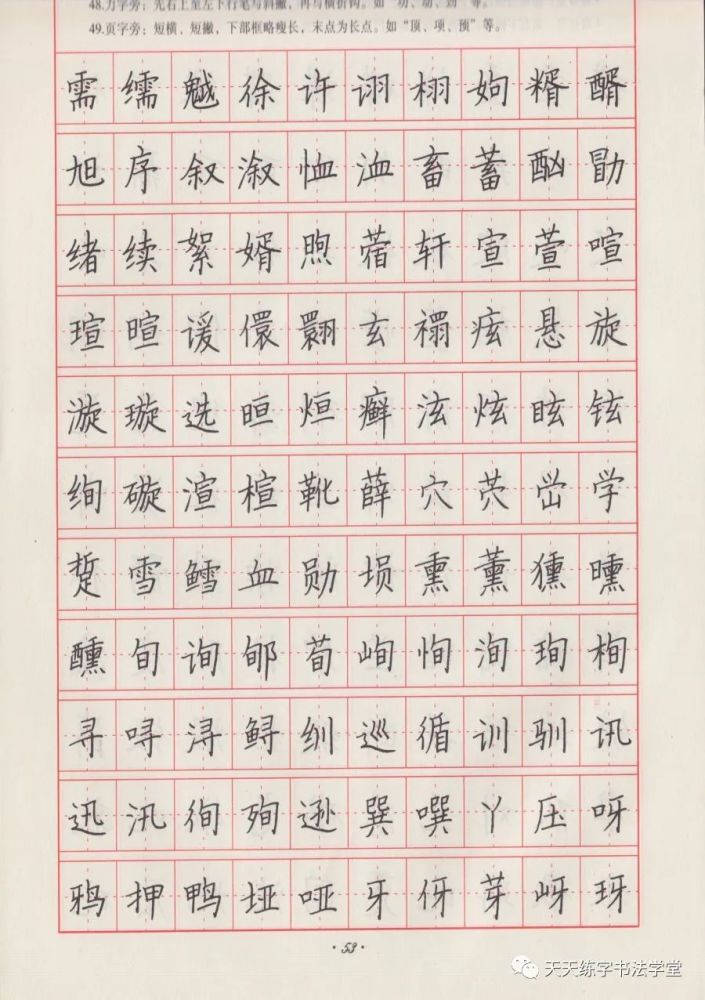 48.力字旁：先右上至左下行笔写斜撇，再写横折钩。如“功、动、劲”等。
49.页字旁：短横、短撇，下部框略瘦长，末点为长点。如“顶、项、预”等。
需𦈡魆徐许诩栩姁糈醑
旭序叙溆恤洫畜蓄酗勖
绪续絮婿煦蓿轩宣萱喧
瑄暄谖儇翾玄禤痃悬旋
漩璇选晅烜癣泫炫眩铉
绚渲楦靴薛穴茓峃学
踅雪鳕血勋埙熏薰獯曛
醺旬询郇荀峋恂洵珣栒
寻㖊浔鲟𬘓巡循训驯讯
迅汛徇殉逊巽噀丫压呀
鸦押鸭垭哑牙伢芽岈玡
·53·
天天练字书法学堂